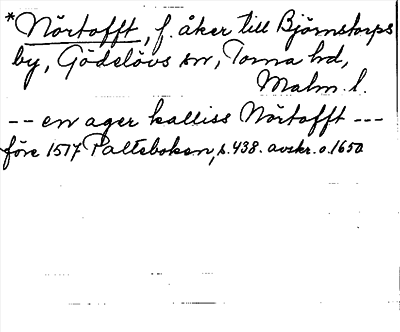 *Nörtofft, f. åker till Björnstorps
by, Gödelövs sn, Torna hd,
Malm. l.
-- en ager kalliss Nörtofft ---
före 1517 Palteboken, s. 438. avskr. o. 1650